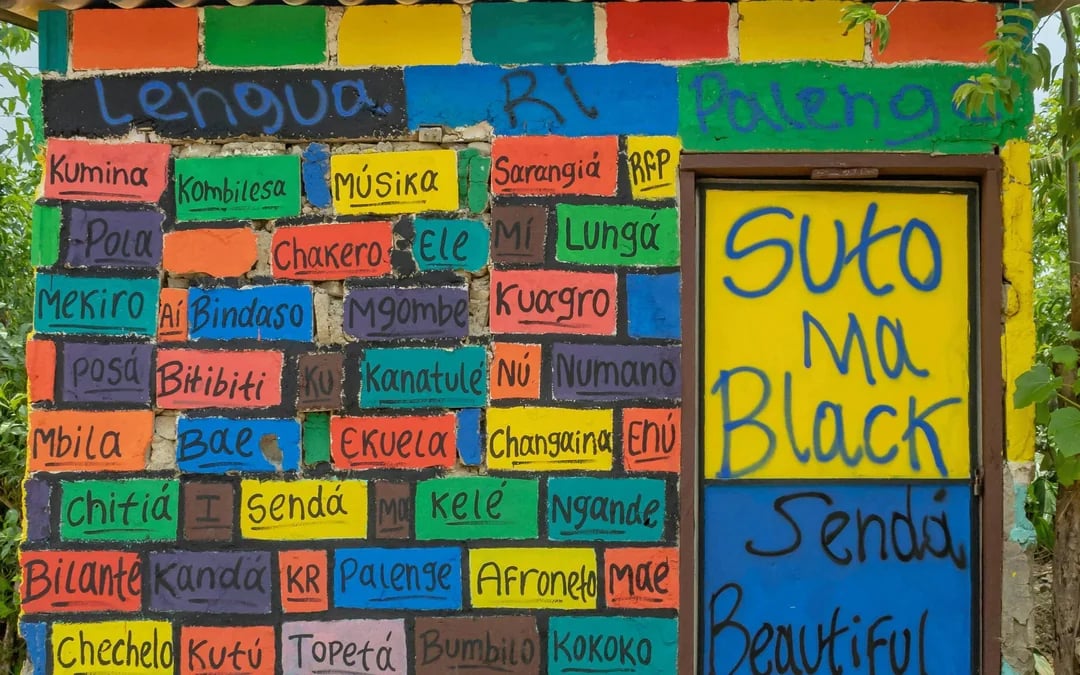 Lengua Ri Palengue
Kumina Kombilesa MÚSika Sarangiá RFP
Pola Chakero Ele Mí Lungá
Mekiro Aí Bindaso Mgombe Kuagro
Posá Bitibiti Ku Kanatulé Nú Numano
Mbila Bae Ekuela Changaina Enú
Chitiá I Sendá Ma Kelé Ngande
Bilante Kandá KR Palenge Afroneto Mae
Chechelo Kutú Topetá Bumbilo Kokoko
Suto
Ma
Black
Sendá
Beautiful